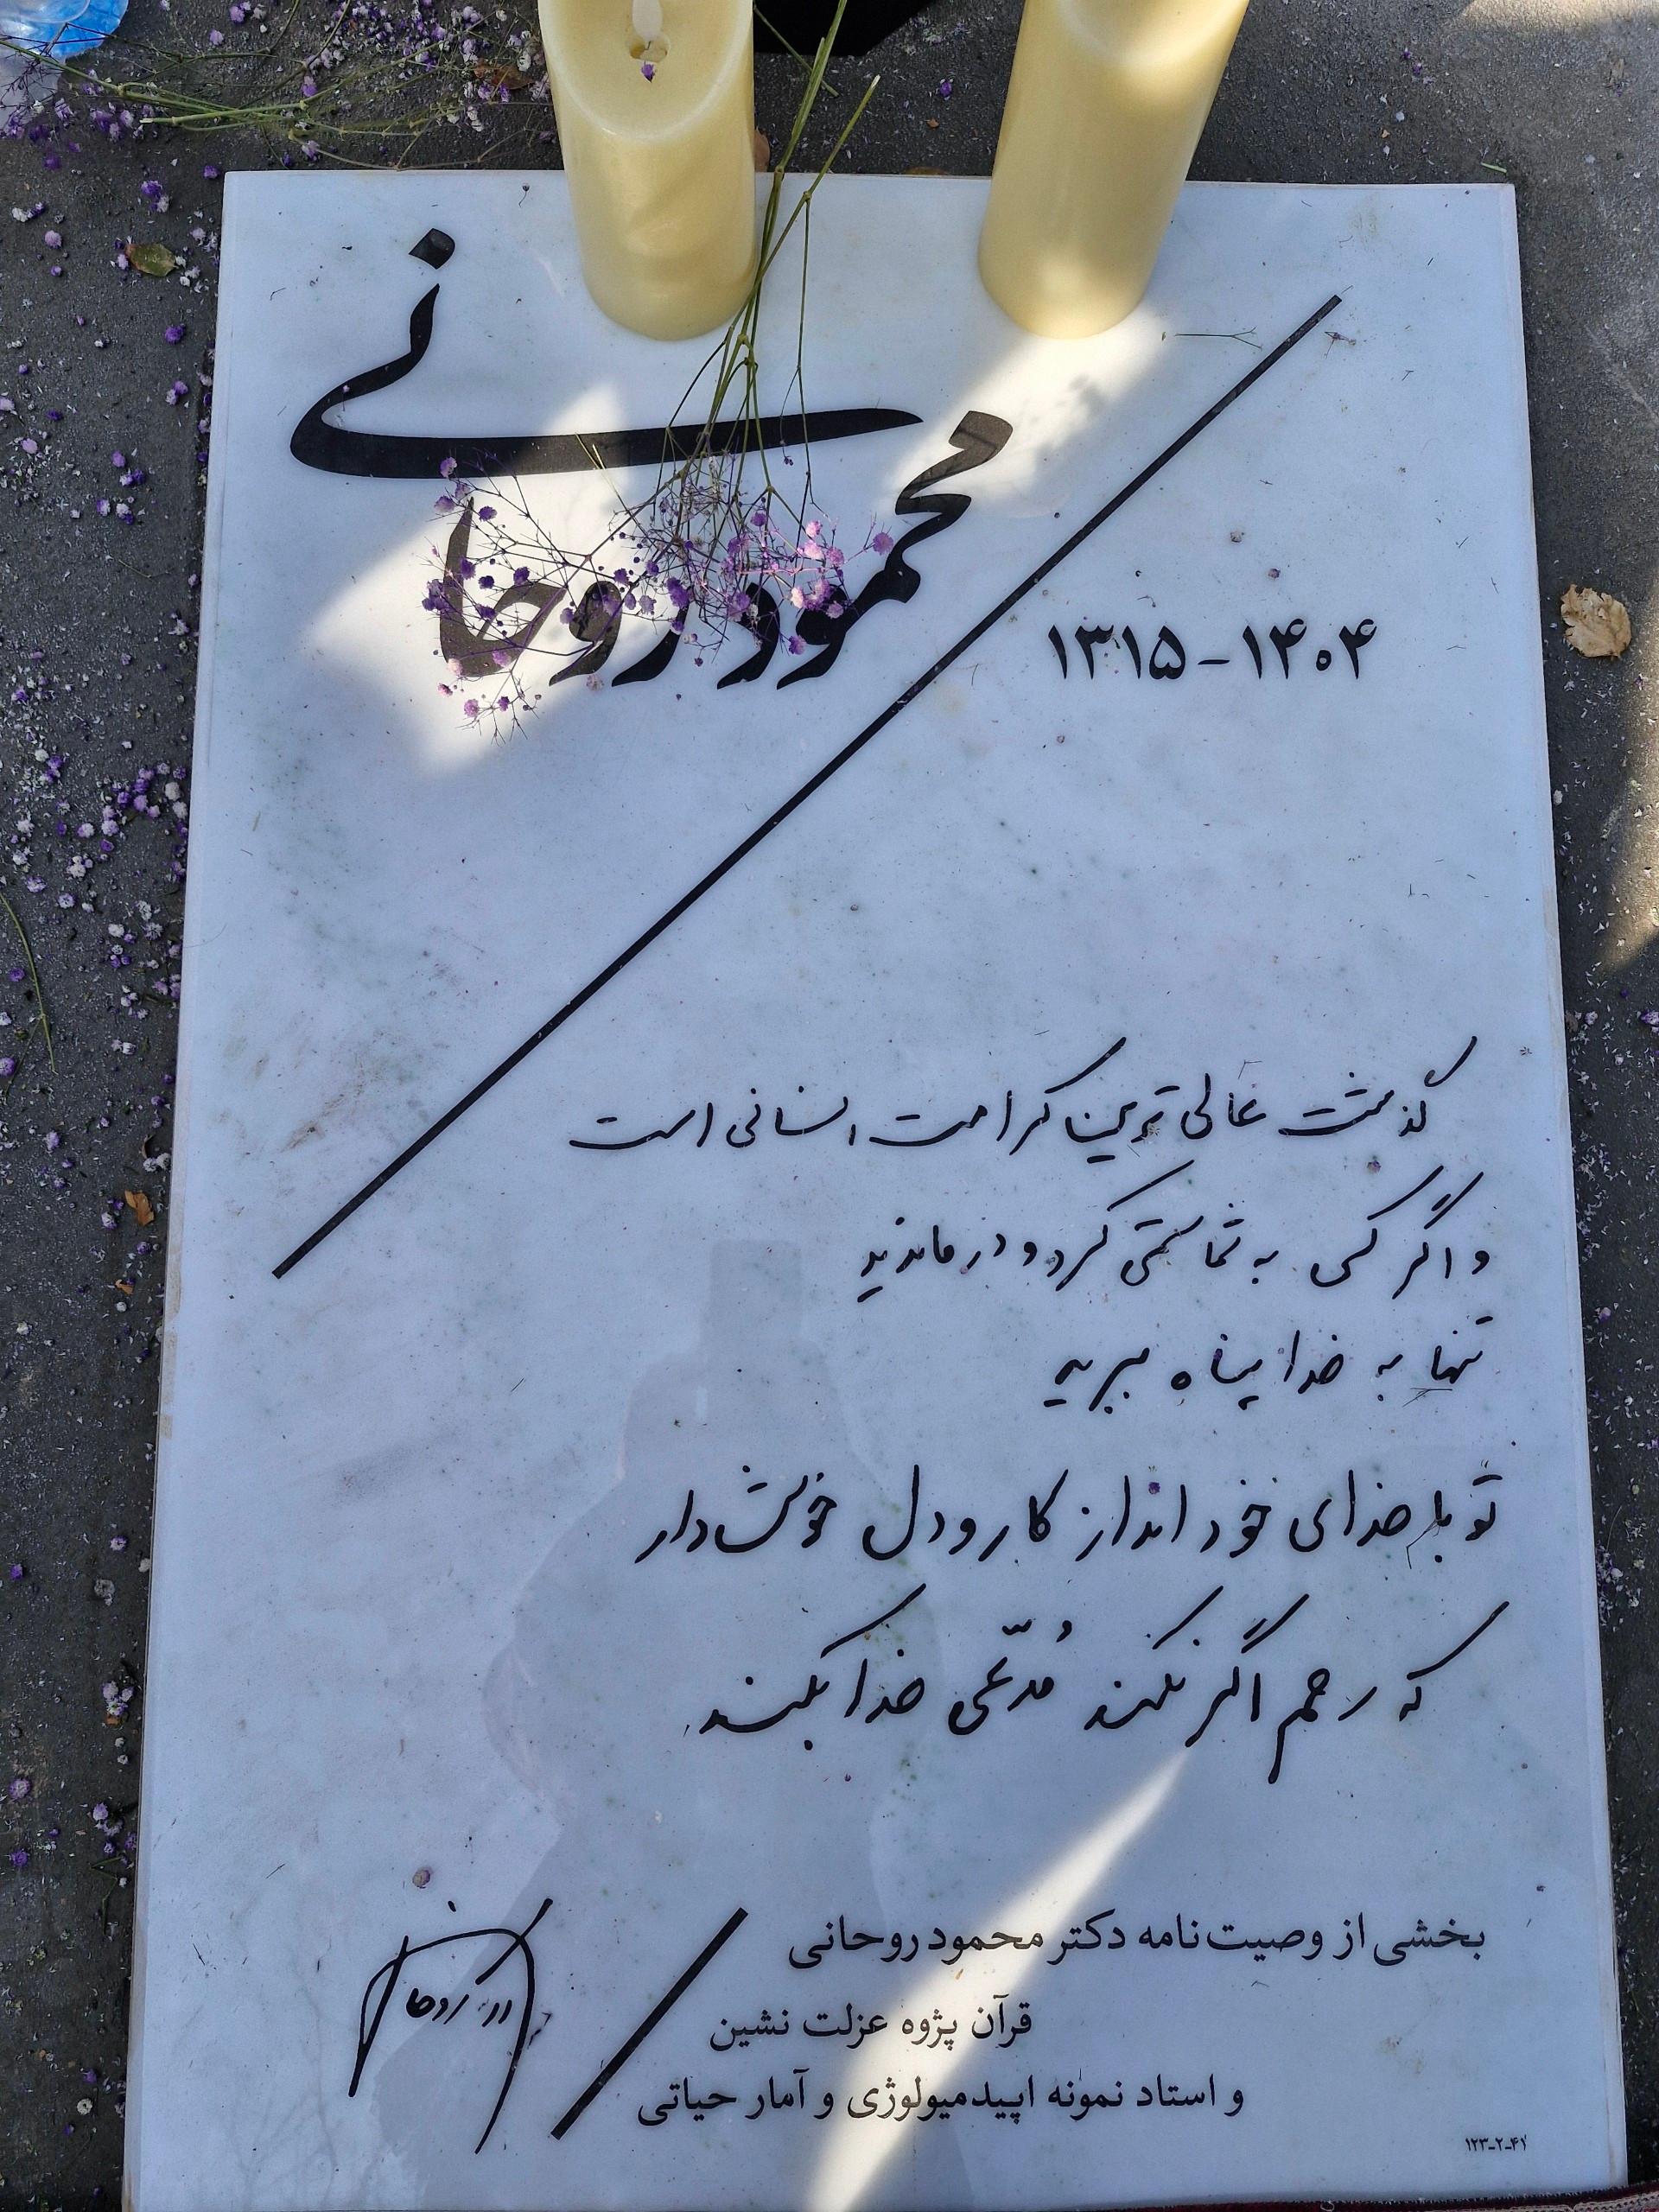 محمود روحانی
۱۳۱۵-۱۴۰۴
گذشت عالی ترین کرامت انسانی است
و اگر کسی به شما ستمی کرد و درماندید
تنها به خدا پناه ببرید
تو با خدای خود انداز کار و دل خوش دار
که رحم اگر نکند مُدّعی خدا بکند
بخشی از وصیت‌نامه دکتر محمود روحانی
قرآن پژوه عزلت نشین
و استاد نمونه اپیدمیولوژی و آمار حیاتی
روحانی
۱۲۳-۲-۴۱